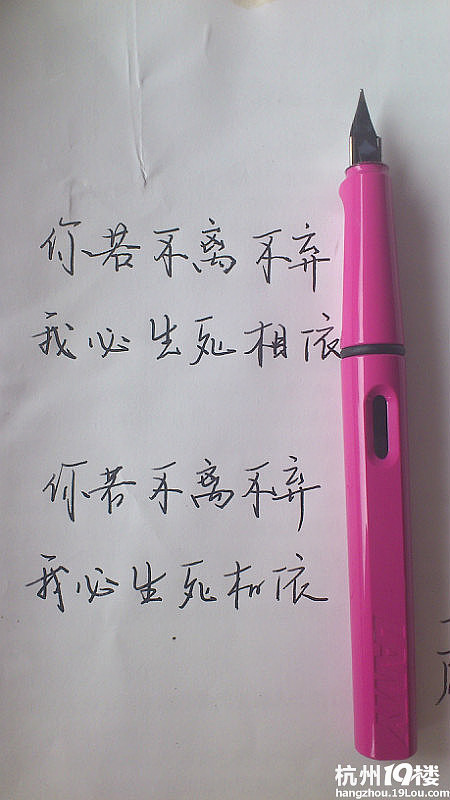 你若不离不弃
我必生死相依
你若不离不弃
我必生死相依
LAMY
杭州19楼
hangzhou.19Lou.com